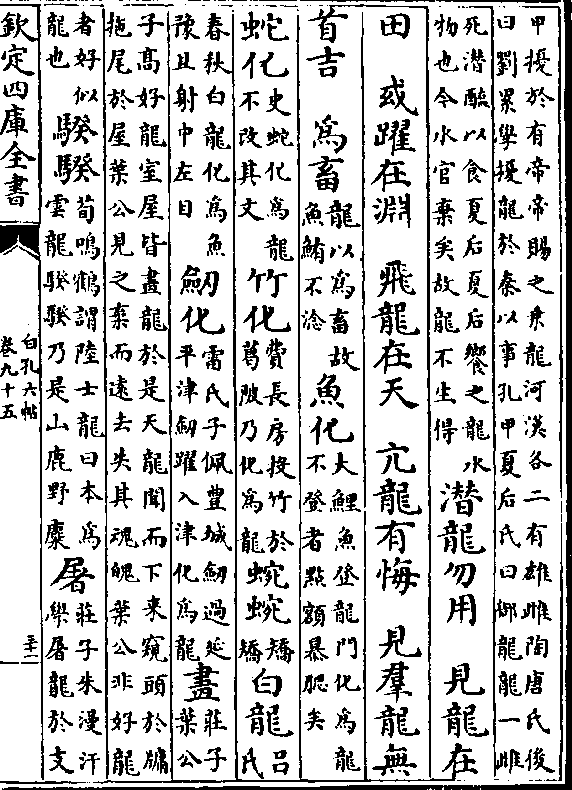 甲擾於有帝帝賜之乘龍河漢各二有雄雌陶唐氏後
曰劉累學擾龍於豢以事孔甲夏后氏曰御龍龍一雌
死潜醢以食夏后夏后饗之龍水
物也今水官棄矣故龍不生得
潜龍勿用　見龍在
田　或躍在淵　飛龍在天　亢龍有悔　見羣龍無
首吉　為畜
龍以為畜故
魚鮪不淰
魚化
大鯉魚登龍門化為龍
不登者點額暴腮矣
蛇化
史蛇化為龍
不改其文
竹化
費長房投竹於
葛陂乃化為龍
蜿蜿
矯
矯
白龍
吕氏
春秋白龍化為魚
豫且射中左目
劒化
雷氏子佩豊城劒過延
平津劒躍入津化為龍
畫
莊子
葉公
子髙好龍室屋皆畫龍於是天龍聞而下来窺頭於牖
拖尾於屋葉公見之棄而逺去失其魂魄葉公非好龍
者好似
龍也
騤騤
荀鳴鶴謂陸士龍曰本為
雲龍騤騤乃是山鹿野麋
屠
莊子朱漫汗
學屠龍於支
欽定四庫全書
白孔六帖
卷九十五